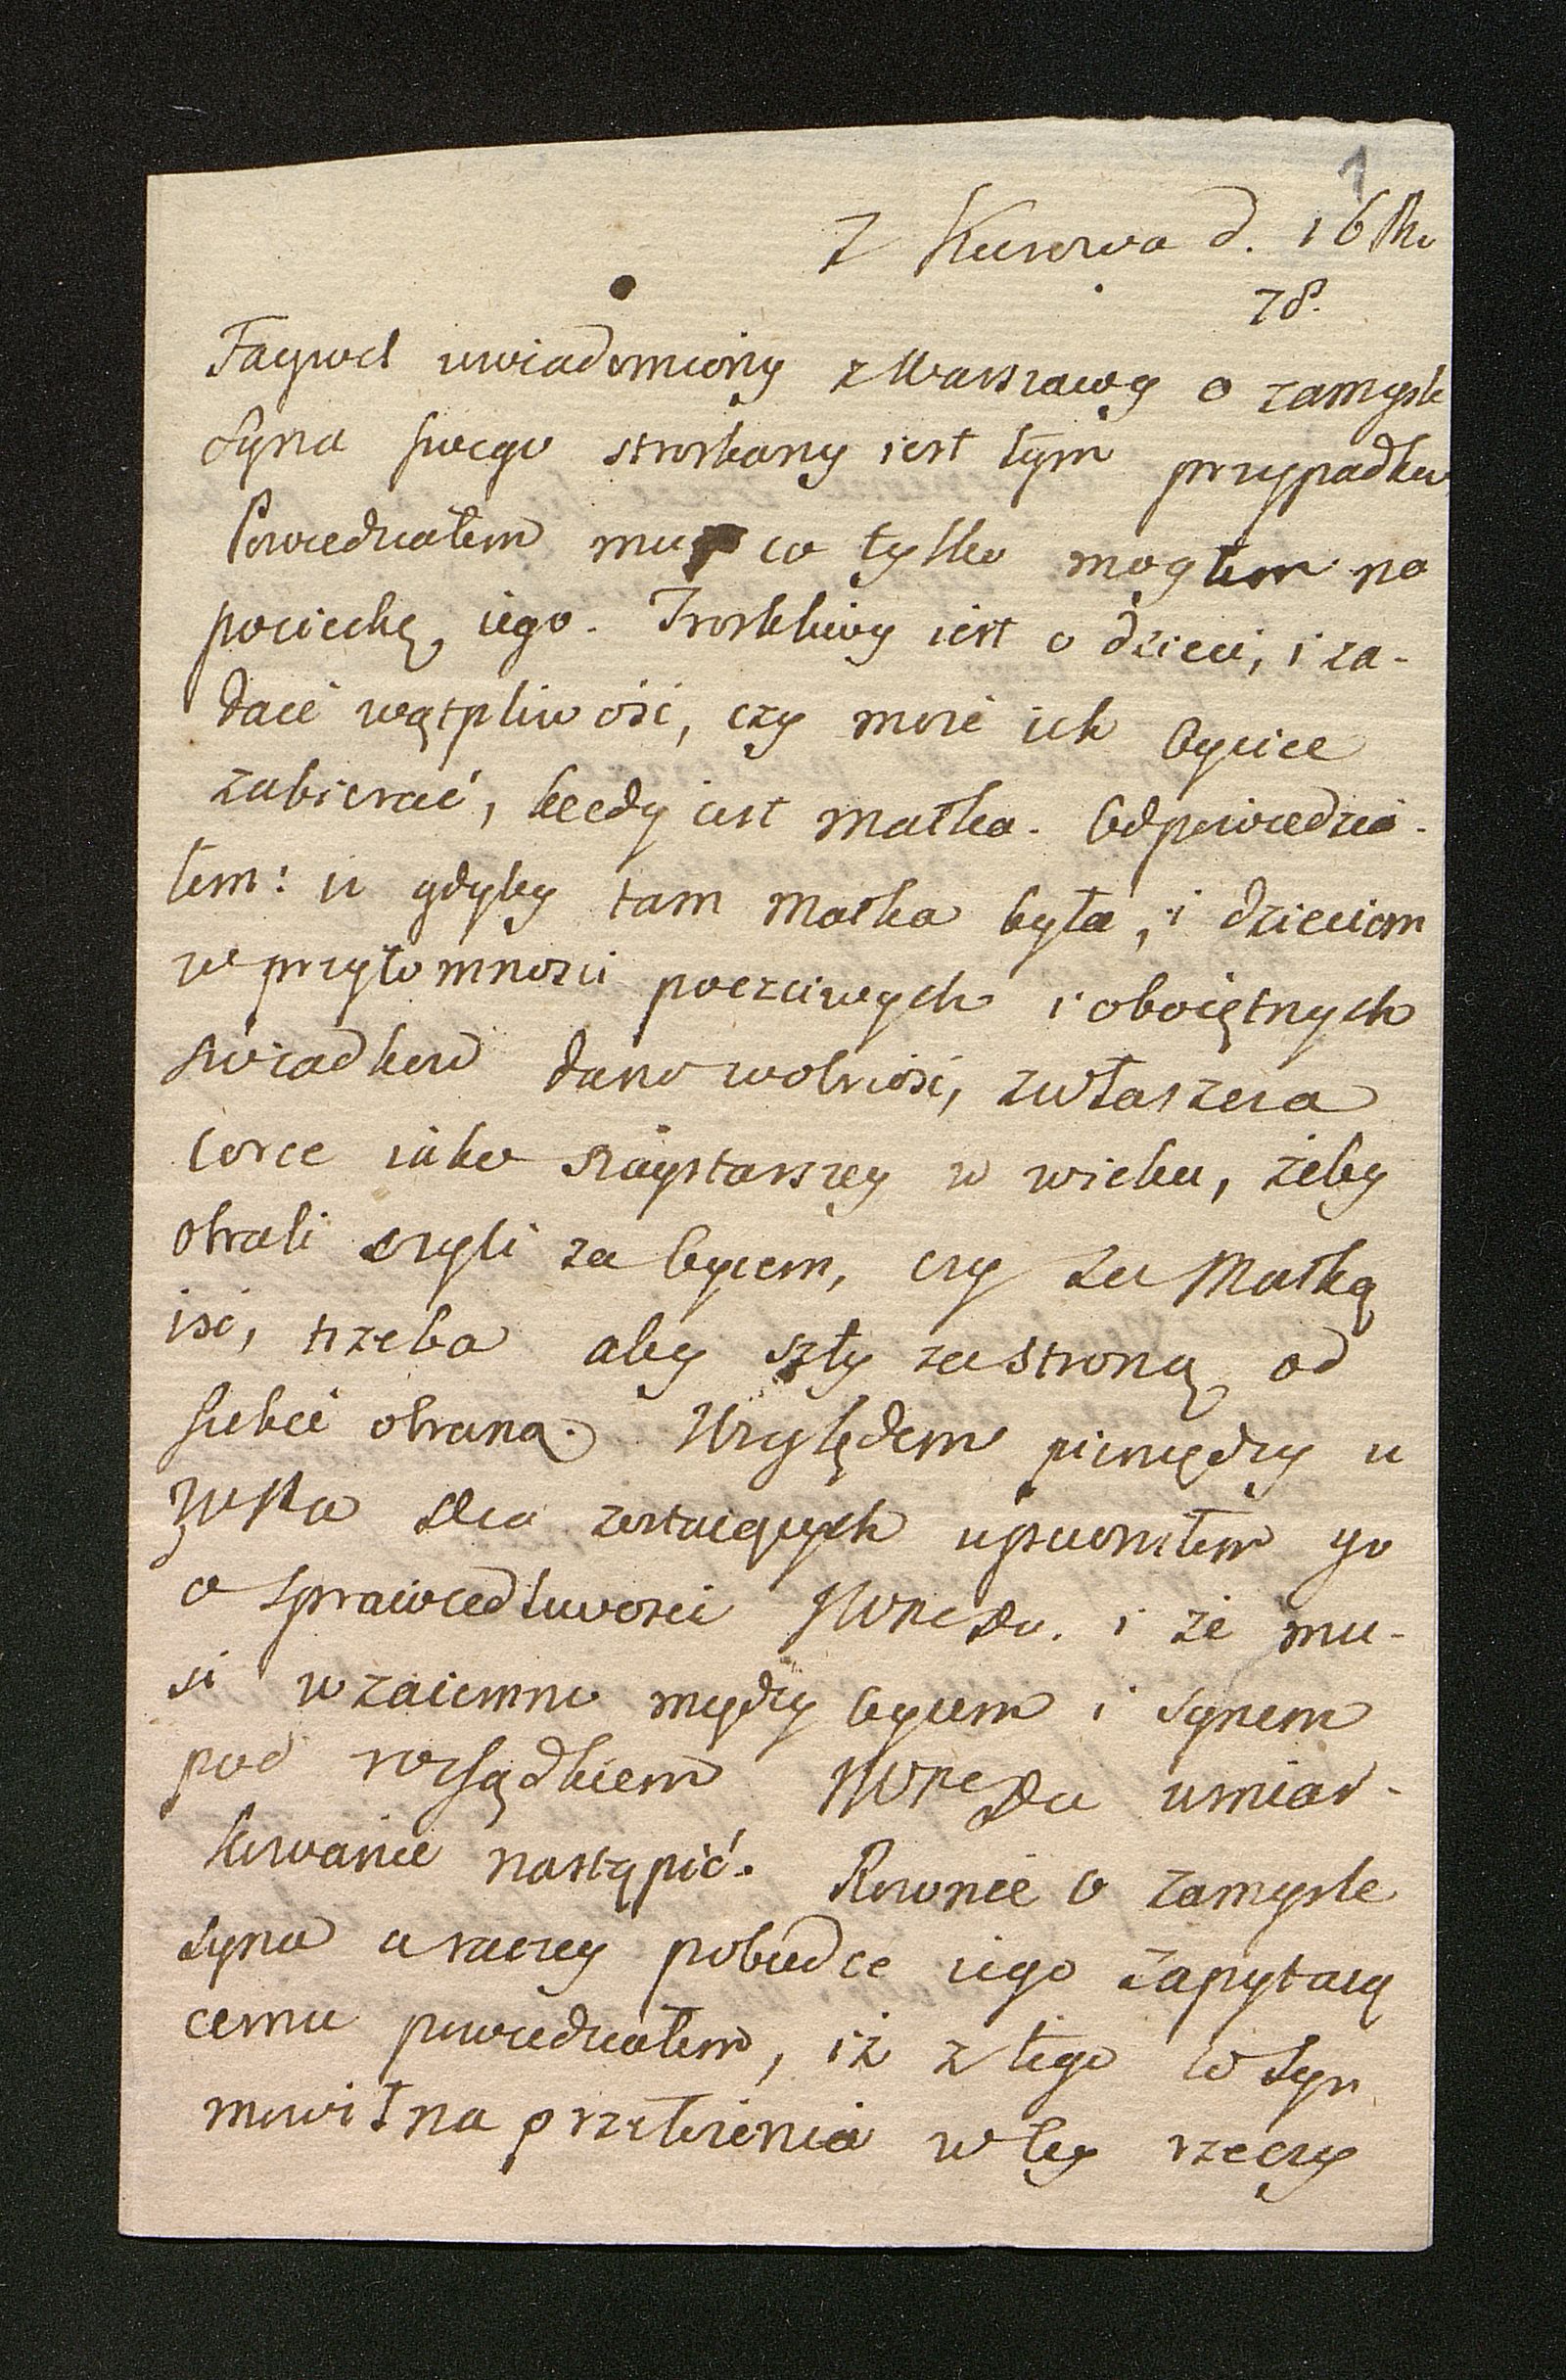 1
Z Kurowa d. 16
78.
Faywel uwiadomiony z Warszawy o zamysle
Syna swego stroskany iest tym przypadku
Powiedziałem mu co tylko mogłem na
pociechę iego. Troskliwy iest o dzieci, i za-
daie wątpliwość, czy może ich Oyciec
zabierać, kiedy iest matka. Odpowiedzia-
łem: iż gdyby tam Matka była, i dzieciom
w przytomności poczciwych i oboiętnych
świadków dano wolność, zwłaszcza
Corce iako naystarszey w wieku, żeby
obrali czyli za Oycem, czy za Matką
iść, trzeba aby szły za stroną od
siebie obraną. Względem pieniędzy u
Zyska dla zostaiących upewniłem go
o sprawiedliwości JWPc Du. i że mu-
si wzaiemne między Oycem i Synem
pod rozsądkiem JWPc Du umiar-
kowanie nastąpić. Rownie o zamysle
Syna a raczey pobudce iego zapytaią
cemu powiedziałem, iż z tego co Syn
mowił na przełożenia w tey rzeczy